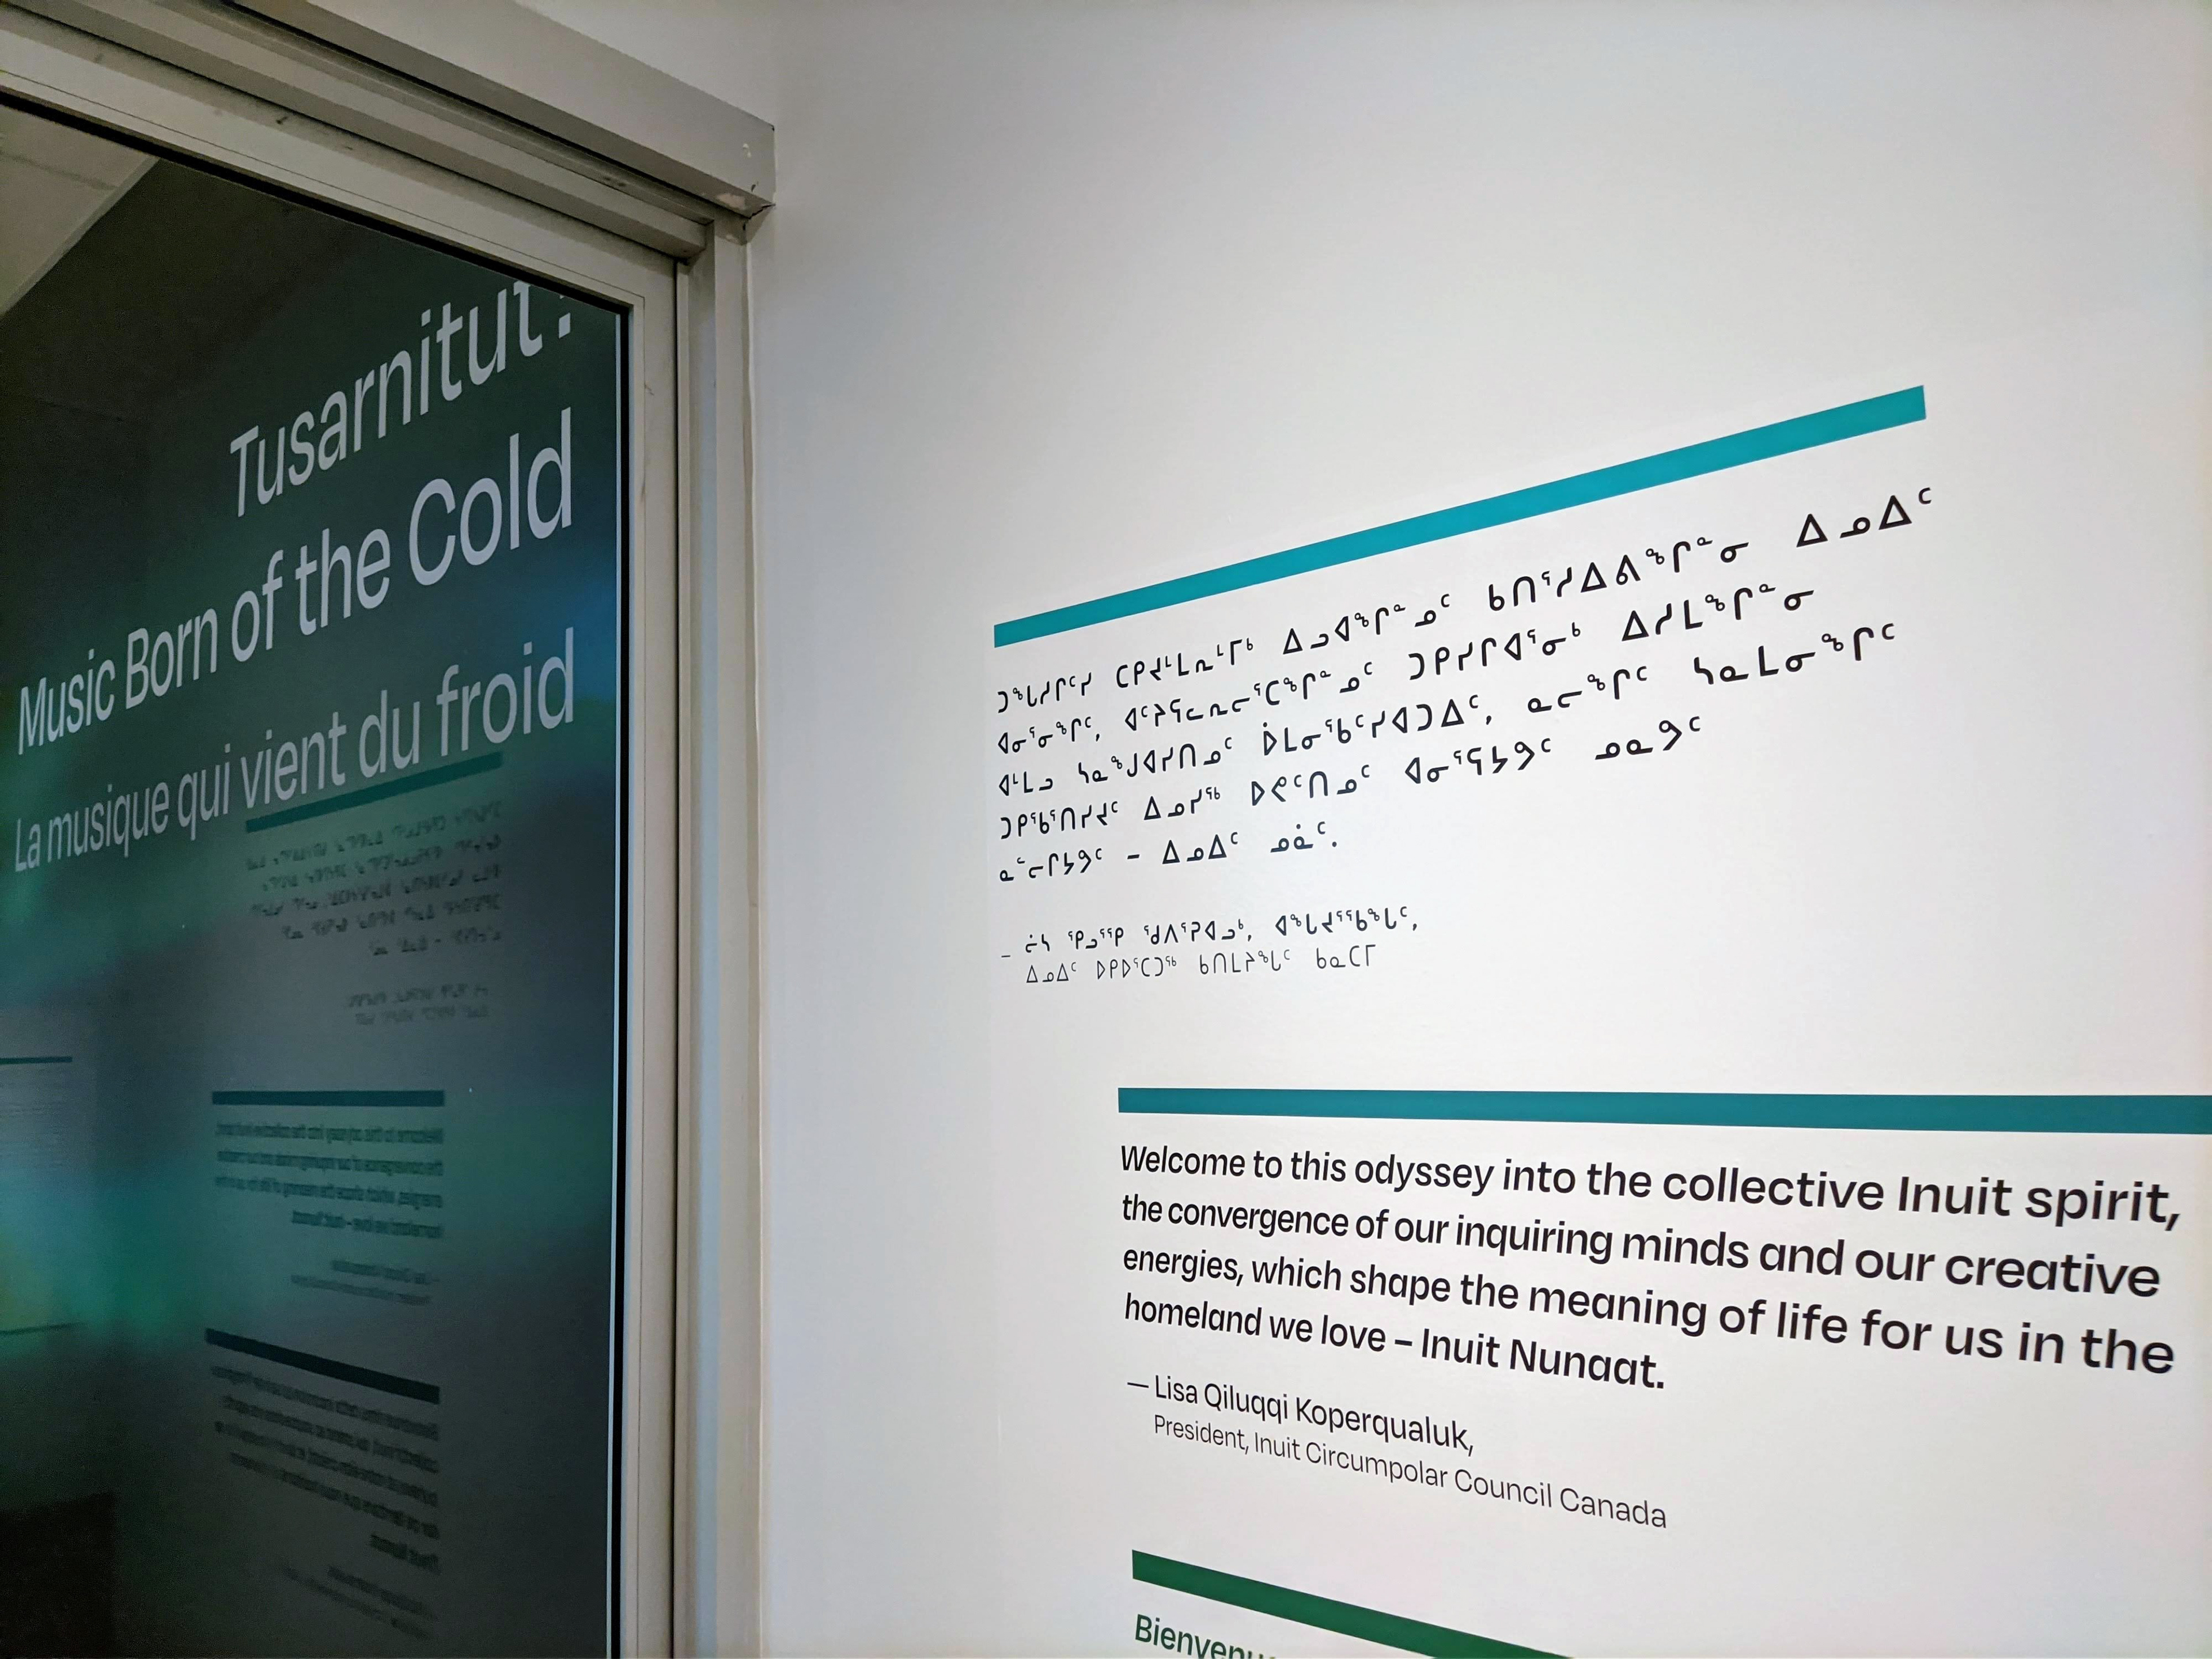 Tusarnitut!
Music Born of the Cold
La musique qui vient du froid
ᑐᙵᓱᒋᑦᓯ ᑕᑭᔪᒻᒪᕆᒻᒥᒃ ᐃᓗᐊᖏᓐᓄᑦ ᑲᑎᕐᓱᐃᕕᖏᓐᓂ ᐃᓄᐃᑦ
ᐊᓂᕐᓂᖏᑦ, ᐊᑦᔨᕋᓚᕆᓕᕐᑕᖏᓐᓄᑦ ᑐᑭᓯᒋᐊᕐᓂᒃ ᐃᓱᒪᖏᓐᓂ
ᐊᒻᒪᓗ ᓴᓇᙳᐊᓯᑎᓄᑦ ᐆᒪᓂᖃᑦᓯᐊᑐᐃᑦ, ᓇᓕᖏᑦ ᓴᓇᒪᓂᖏᑦ
ᑐᑭᖃᕐᑎᓯᔪᑦ ᐃᓄᓯᖅ ᐅᕙᑦᑎᓄᑦ ᐊᓂᕐᕋᔭᕗᑦ ᓄᓇᕗᑦ
ᓇᓪᓕᒋᔭᕗᑦ – ᐃᓄᐃᑦ ᓄᓈᑦ.
– ᓖᓴ ᕿᓗᕐᕿ ᖁᐱᕐᕈᐊᓗᒃ, ᐊᖓᔪᕐᖃᖓᑦ,
ᐃᓄᐃᑦ ᐅᑭᐅᕐᑕᑐᖅ ᑲᑎᒪᔨᖓᑦ ᑲᓇᑕᒥ
Welcome to this odyssey into the collective Inuit spirit,
the convergence of our inquiring minds and our creative
energies, which shape the meaning of life for us in the
homeland we love – Inuit Nunaat.
— Lisa Qiluqqi Koperqualuk,
President, Inuit Circumpolar Council Canada